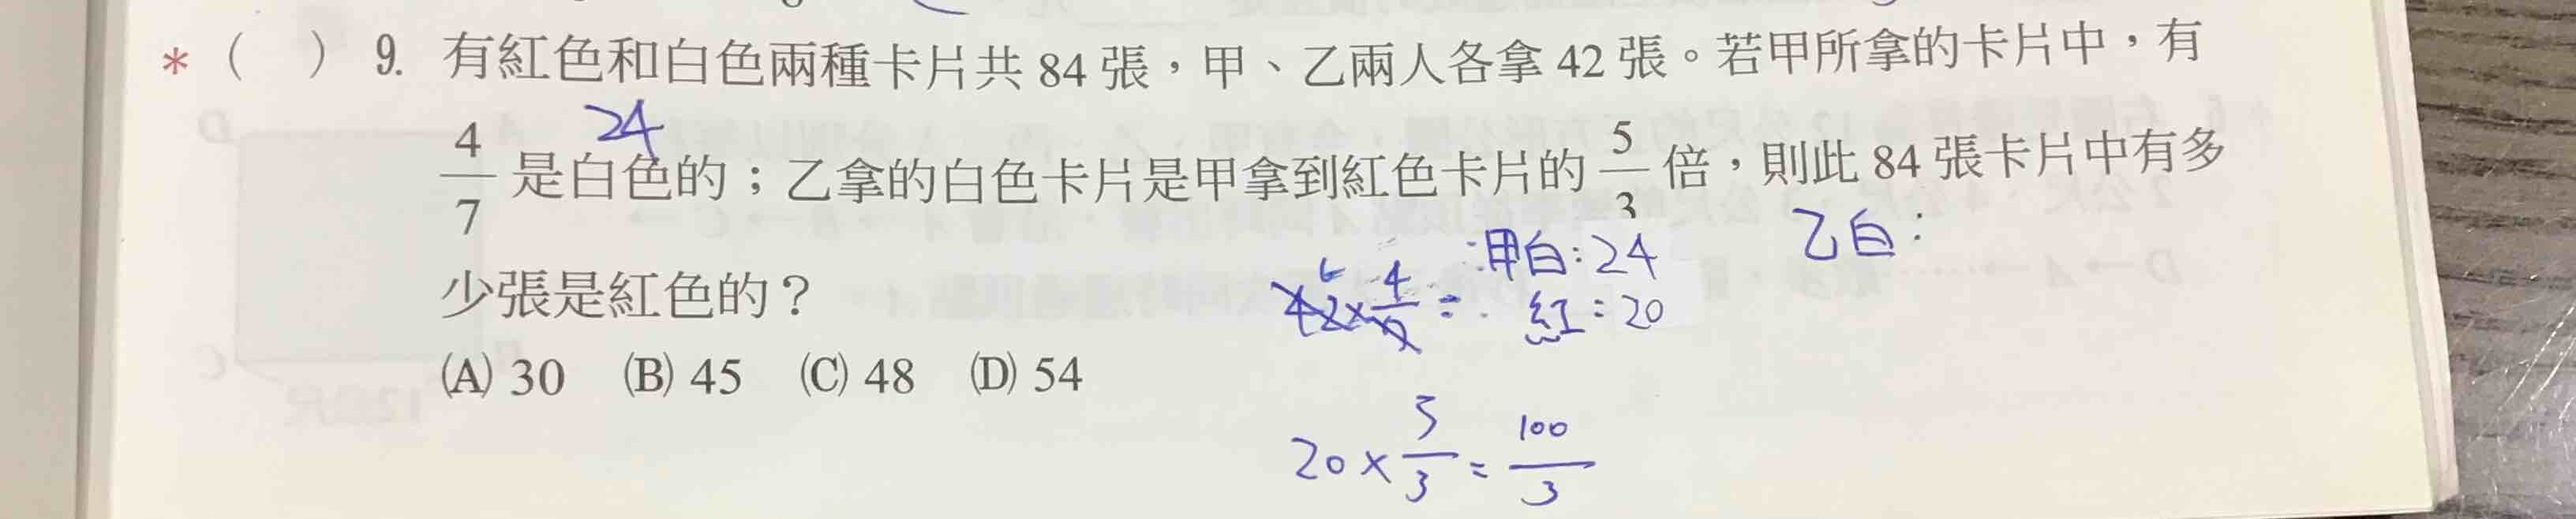 * (　) 9. 有紅色和白色兩種卡片共 84 張，甲、乙兩人各拿 42 張。若甲所拿的卡片中，有
24
4/7 是白色的；乙拿的白色卡片是甲拿到紅色卡片的 5/3 倍，則此 84 張卡片中有多
甲白:24
乙白:
少張是紅色的？
6
42×4/7=
紅:20
(A) 30 (B) 45 (C) 48 (D) 54
20×5/3=100/3